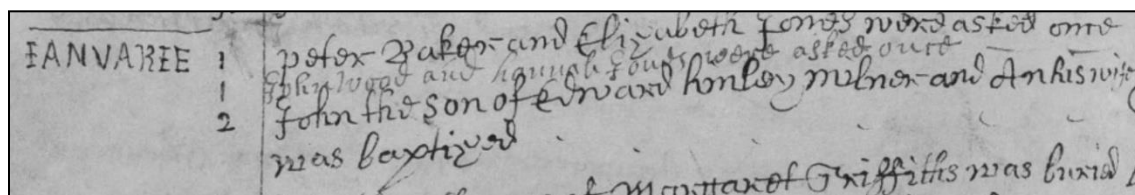 IANVARIE 1 peter Baker and Elizabeth Jones were asked once
1 John Wood and hannah were asked once
2 John the son of Edward honley milner and An his wife
was baptized
Margaret Griffiths was buried